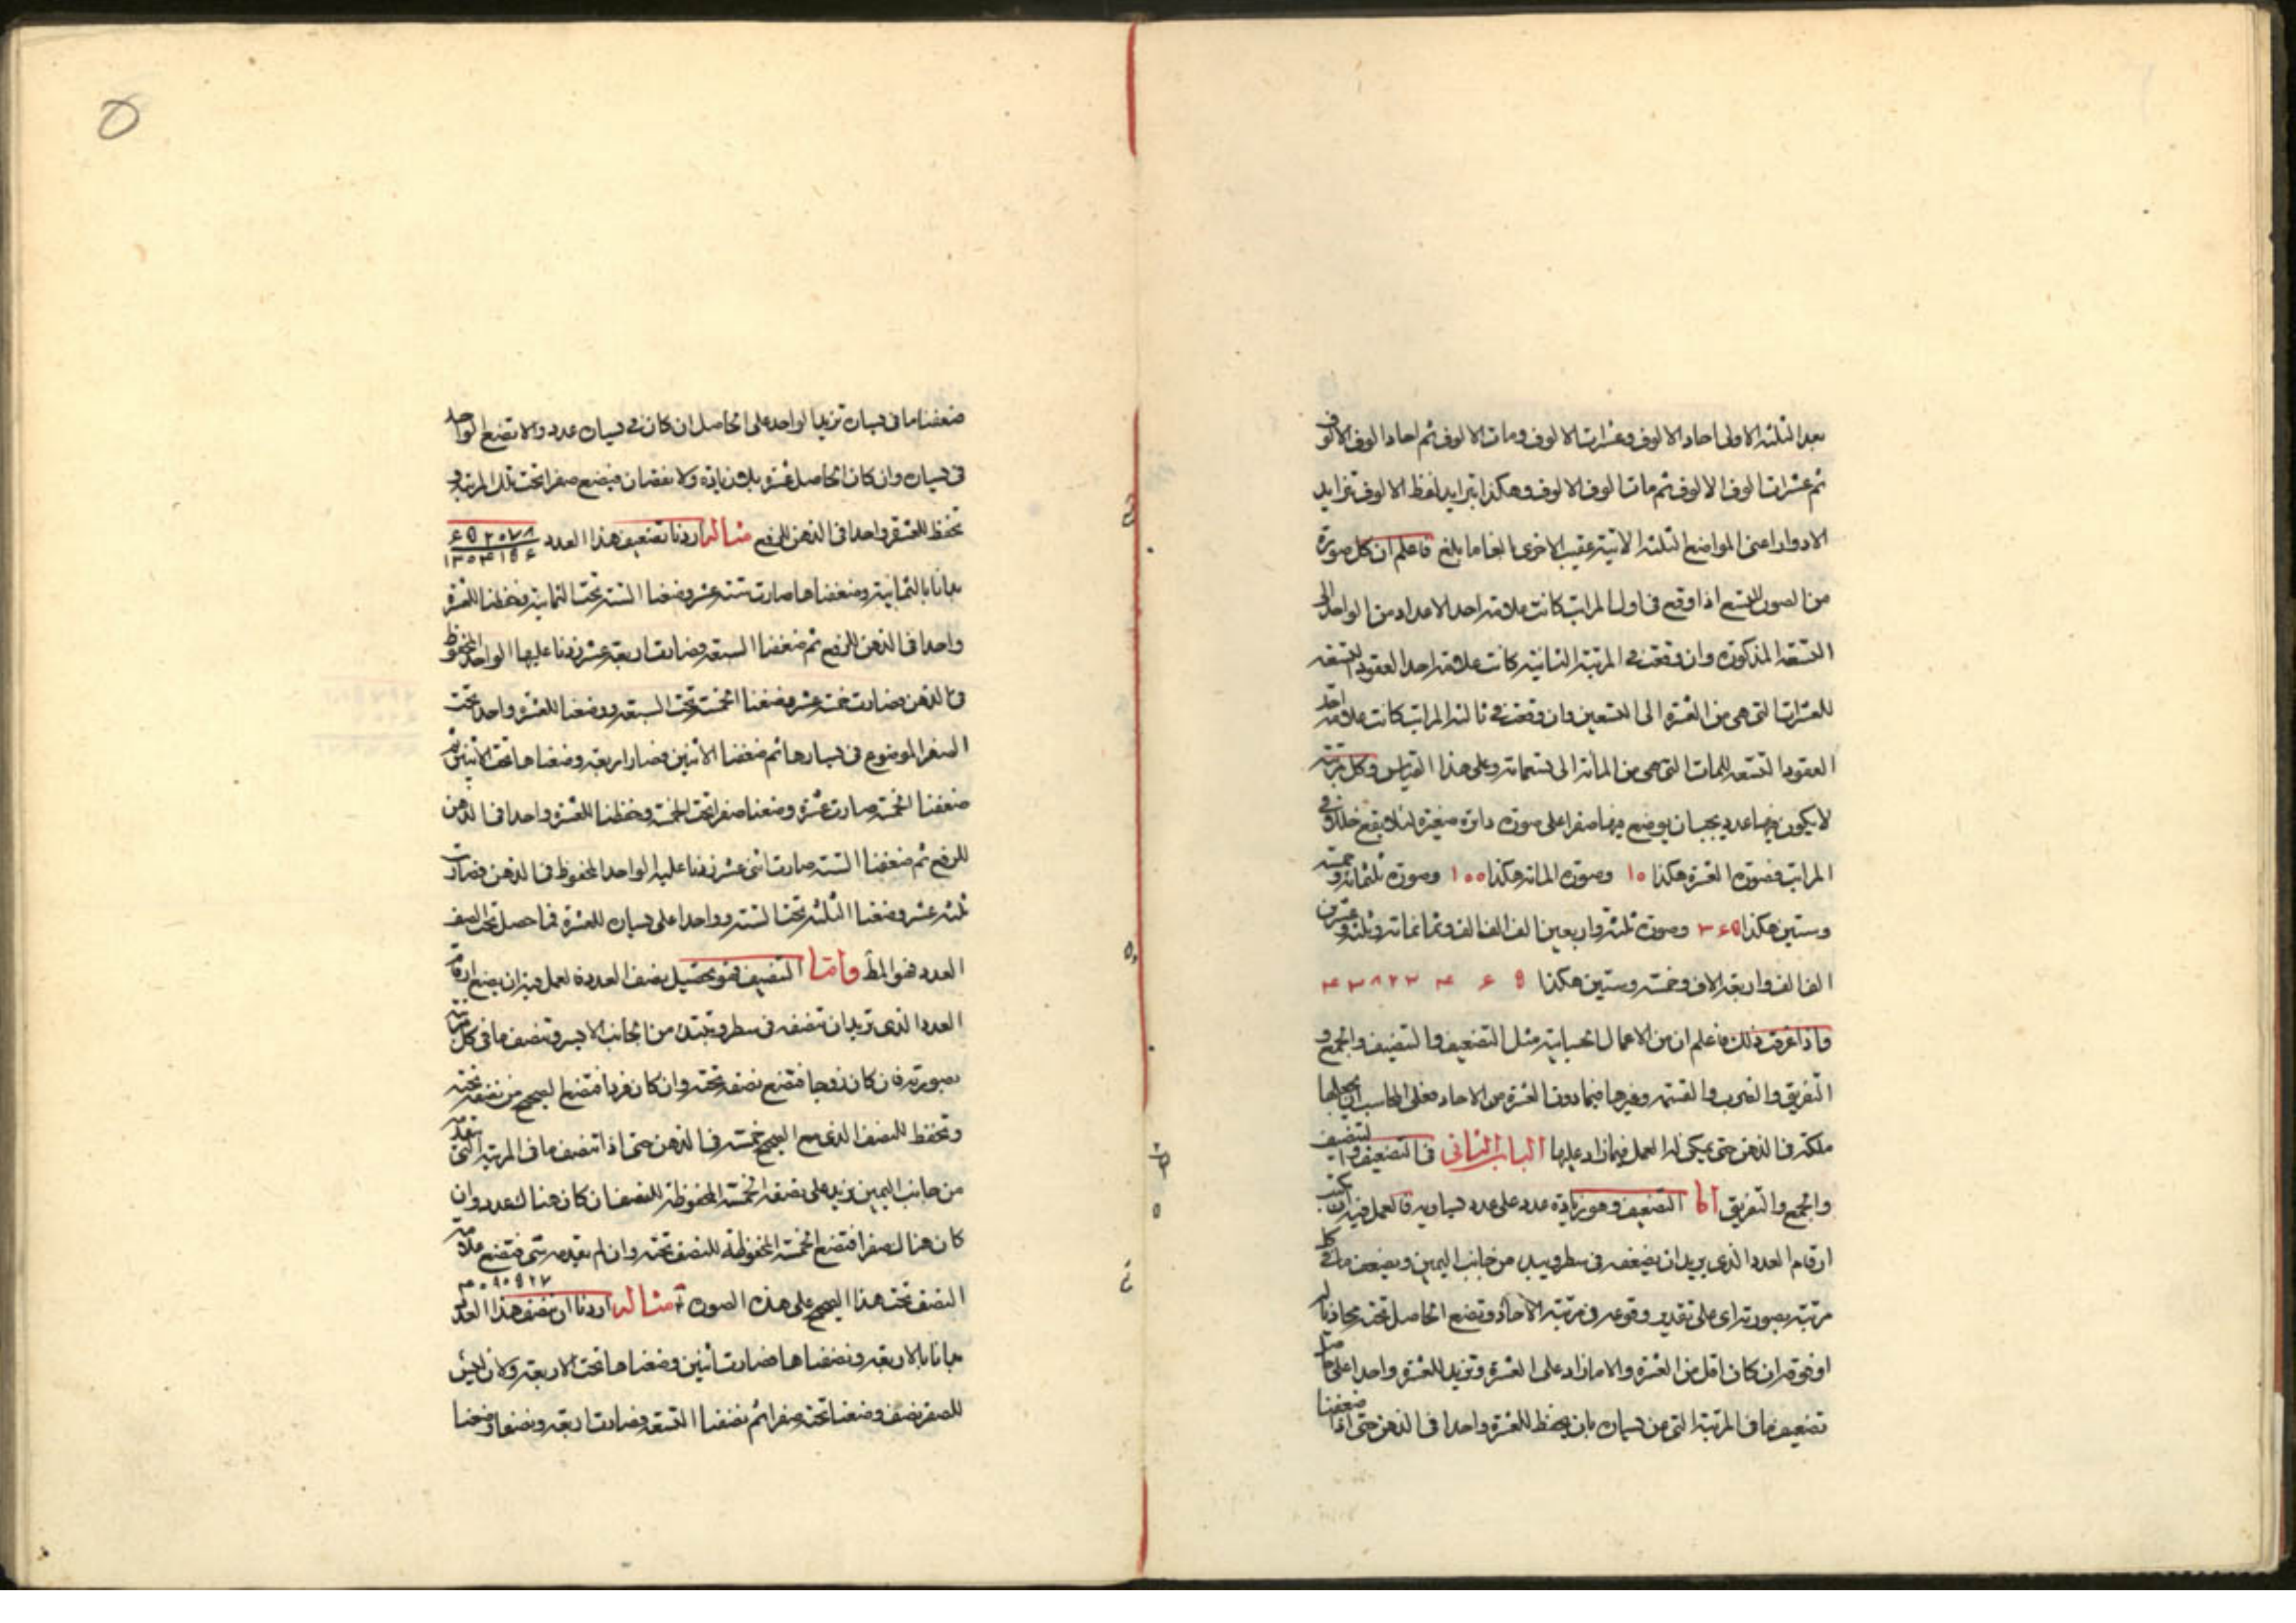 بعد الثلثة الاولى احاد الالوف وعشرات الالوف ومات الالوف ثم احاد الوف الالوف
ثم عشرات الوف الالوف ثم مات الوف الالوف وهكذا يتزايد لفظ الالوف بتزايد
الادوار اعنى المواضع الثلثة الاتية عقيب الاخرى بالغا ما بلغ فاعلم ان كل صورة
من الصور التسع اذا وقع فى اول المراتب كانت علامة احد الاعداد من الواحد الى
التسعة المذكورة وان وقعت فى المرتبة الثانية كانت علامة احد العقود التسعة
للعشرات التى هى من العشرة الى التسعين وان وقعت فى ثالثة المراتب كانت علامة احد
العقود التسعة للمات التى هى من المائة الى تسعمائة وعلى هذا القياس وكل مرتبة
لا يكون فيها عدد يجب ان يوضع فيها صفرا على صورة دائرة صغيرة لئلا يقع خلل فى
المراتب فصورة العشرة هكذا ١٥ وصورة المائة هكذا ١٥٥ وصورة ثلثمائة وخمسة
وستين هكذا ٣۶۵ وصورة ثلثة واربعين الف الف الف وثمانمائة وثلثة وعشرين
الف الف واربعة الاف وخمسة وستين هكذا ۴٣٨٢٣ ۴ ۶ ۵
واذا عرفت ذلك فاعلم ان من الاعمال الحسابية مثل التضعيف والتنصيف والجمع و
التفريق والضرب والقسمة وغيرها فيما دون العشرة من الاحاد فعلى المحاسب ان يجعلها
ملكة فى الذهن حتى يمكن له العمل فيما زاد عليها الباب الثانى فى التضعيف والتنصيف
والجمع والتفريق اما التضعيف وهو زيادة عدد على عدد يساويه فالعمل فيه ان يكتب
ارقام العدد الذى يريد ان يضعفه فى سطر ويبدء من جانب اليمين ويضعف ما فى كل
مرتبة بصورته اى على تقدير وقوعه فى مرتبة الاحاد وتضع الحاصل تحته محاذيا له
او فوقه ان كان اقل من العشرة والا ما زاد على العشرة وتزيد للعشرة واحدا على
تضعيف ما فى المرتبة التى من يساره بان يحفظ للعشرة واحدا فى الذهن حتى اذا ضعفنا
ضعفنا ما فى يساره تزيد الواحد على الحاصل ان كان فى يساره عدد والا تضع الواحد
فى يساره وان كان الحاصل عشرة بلا زيادة ولا نقصان فيضع صفرا تحت تلك المرتبة و
تحفظ للعشرة واحدا فى الذهن للرفع مثاله اردنا تضعيف هذا العدد ۶۵٢٠٧٨
١٣٠۴١۵۶
بدانا بالثمانية وضعفناها صارت ستة عشر وضعنا الستة تحت الثمانية وحفظنا للعشرة
واحدا فى الذهن للرفع ثم ضعفنا السبعة وصارت اربعة عشر زدنا عليها الواحد المحفوظ
فى الذهن فصارت خمسة عشر وضعنا الخمسة تحت السبعة ووضعنا للعشرة واحدا تحت
الصفر الموضوع فى يسارها ثم ضعفنا الاثنين فصار اربعة وضعناها تحت الاثنين ثم
ضعفنا الخمسة صارت عشرة وضعنا صفرا تحت الخمسة وحفظنا للعشرة واحدا فى الذهن
للرفع ثم ضعفنا الستة صارت اثنى عشر زدنا عليه الواحد المحفوظ فى الذهن فصارت
ثلثة عشر وضعنا الثلثة تحت الستة وواحدا على يساره للعشرة فما حصل تحت الصف
العدد فهو المط واما التنصيف فهو تحصيل نصف العدد فالعمل فيه ان يضع ارقام
العدد الذى تريد ان تنصفه فى سطر وتبتدء من الجانب الايسر وتنصف ما فى كل مرتبة
بصورته فان كان زوجا فتضع نصفه تحته وان كان فردا فتضع الصحيح من نصفه تحته
وتحفظ للنصف الذى مع الصحيح خمسة فى الذهن حتى اذا تنصف ما فى المرتبة التى بعده
من جانب اليمين وزيد على نصفه الخمسة المحفوظة للنصف ان كان هناك عدد وان
كان هناك صفرا فتضع الخمسة المحفوظة للنصف تحته وان لم يتقدمه شئ فتضع علامة
النصف تحت هذا الصحيح على هذه الصورة مثاله اردنا ان ننصف هذا العدد
بدانا بالاربعة ونصفناها صارت اثنين وضعناها تحت الاربعة وكان ليس
للصفر نصف وضعنا تحته صفرا ثم نصفنا التسعة وصارت اربعة ونصفا وضعنا